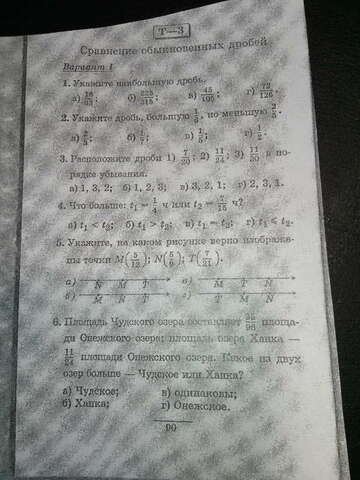 Т—3
Сравнение обыкновенных дробей
Вариант I
1. Укажите наибольшую дробь.
а) б) в) г)
2. Укажите дробь, большую 1/3, но меньшую
а) б) в) г) 1/2.
3. Расположите дроби 1) 7/20; 2) 11/24; 3) 11/50 в по-
рядке убывания.
а) 1, 3, 2; б) 1, 2, 3; в) 3, 2, 1; г) 2, 3, 1.
4. Что больше: t₁ = 1/4 ч или t₂ = 7/15 ч?
а) t₁ < t₂; б) t₁ > t₂; в) t₁ = t₂; г) t₁ ⩽ t₂.
5. Укажите, на каком рисунке верно изображе-
ны точки M(5/12); N(5/6); T(7/21).
а) N M T в) M T N
б) N M г) T M N
6. Площадь Чудского озера составляет площа-
ди Онежского озера; площадь озера Ханка —
площади Онежского озера. Какое из двух
озер больше — Чудское или Ханка?
а) Чудское; в) одинаковы;
б) Ханка; г) Онежское.
90